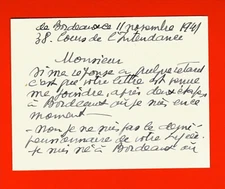 de Bordeaux ce 11 novembre 1941
38. Cours de l'Intendance
Monsieur
Si ma réponse a quelque retard
c'est que votre lettre est venue
me joindre, après deux étapes
à Bordeaux où je suis en ce
moment
- Non je ne suis pas le demi-
pensionnaire de votre lycée.
Je suis né à Bordeaux où